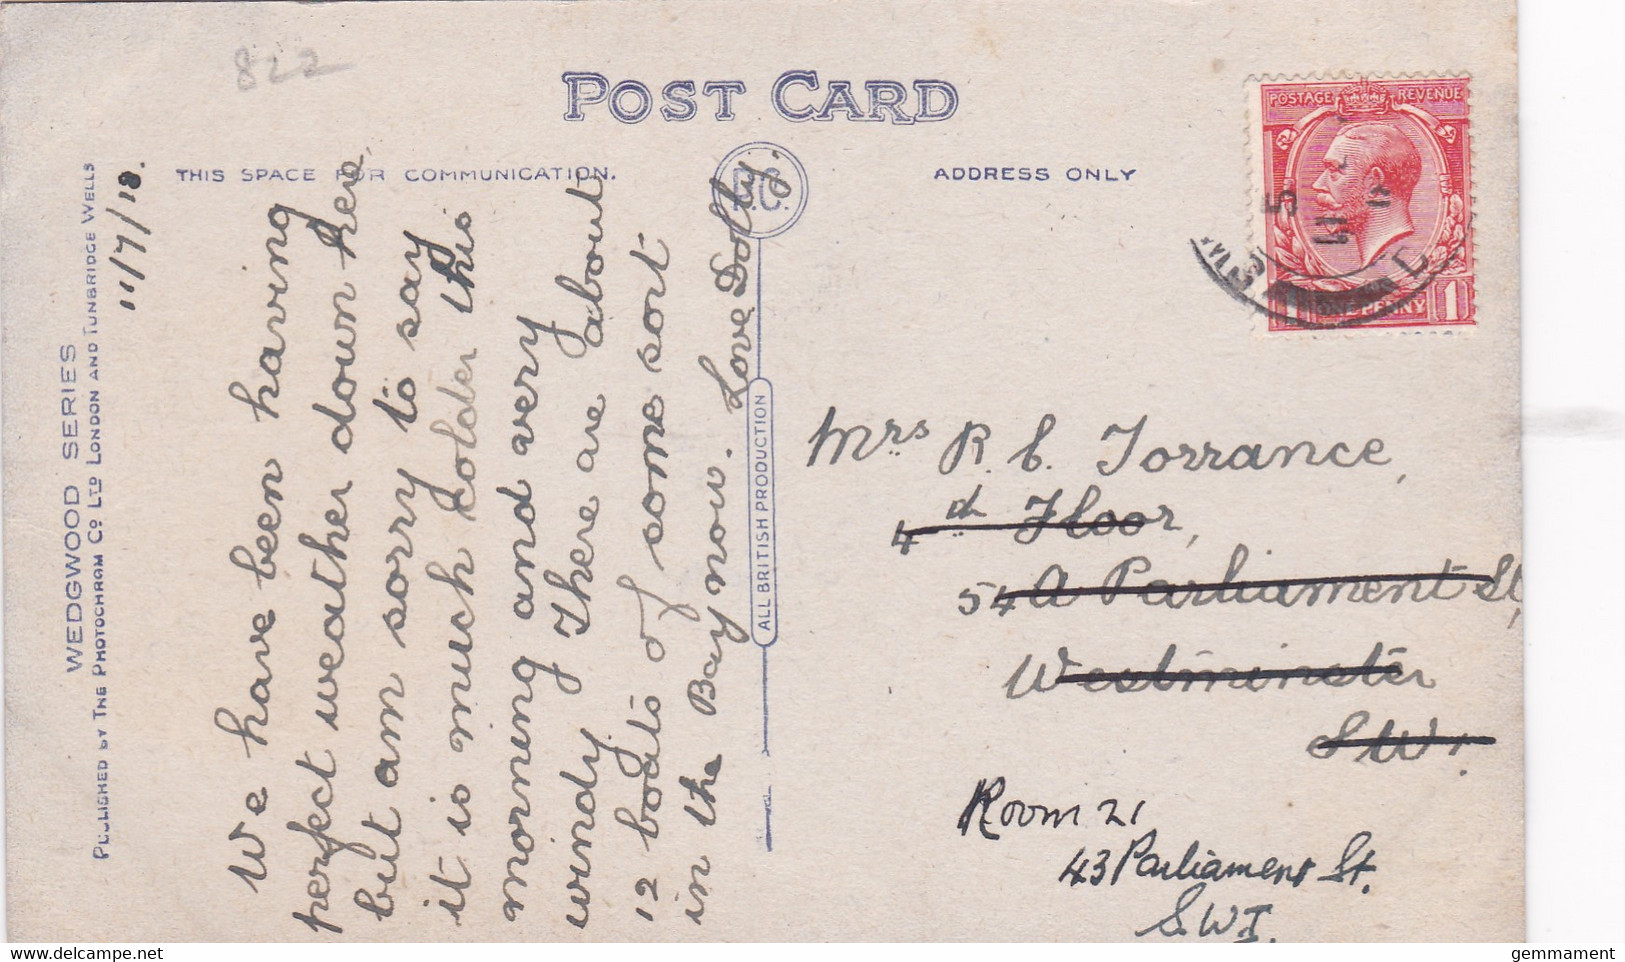 822
POST CARD
THIS SPACE FOR COMMUNICATION.
ADDRESS ONLY
P.C.
ALL BRITISH PRODUCTION
WEDGWOOD SERIES
PUBLISHED BY THE PHOTOCHROM CO LTD LONDON AND TUNBRIDGE WELLS
11/7/18.
We have been having
perfect weather down here,
but am sorry to say
it is much colder this
morning and very
windy. There are about
12 boats of some sort
in the Bay now. Love Dolly.
POSTAGE REVENUE
1 ONE PENNY 1
Mrs R. C. Torrance,
4th Floor,
54A Parliament St,
Westminster
S.W.
Room 21
43 Parliament St.
S.W.1.
gemmament